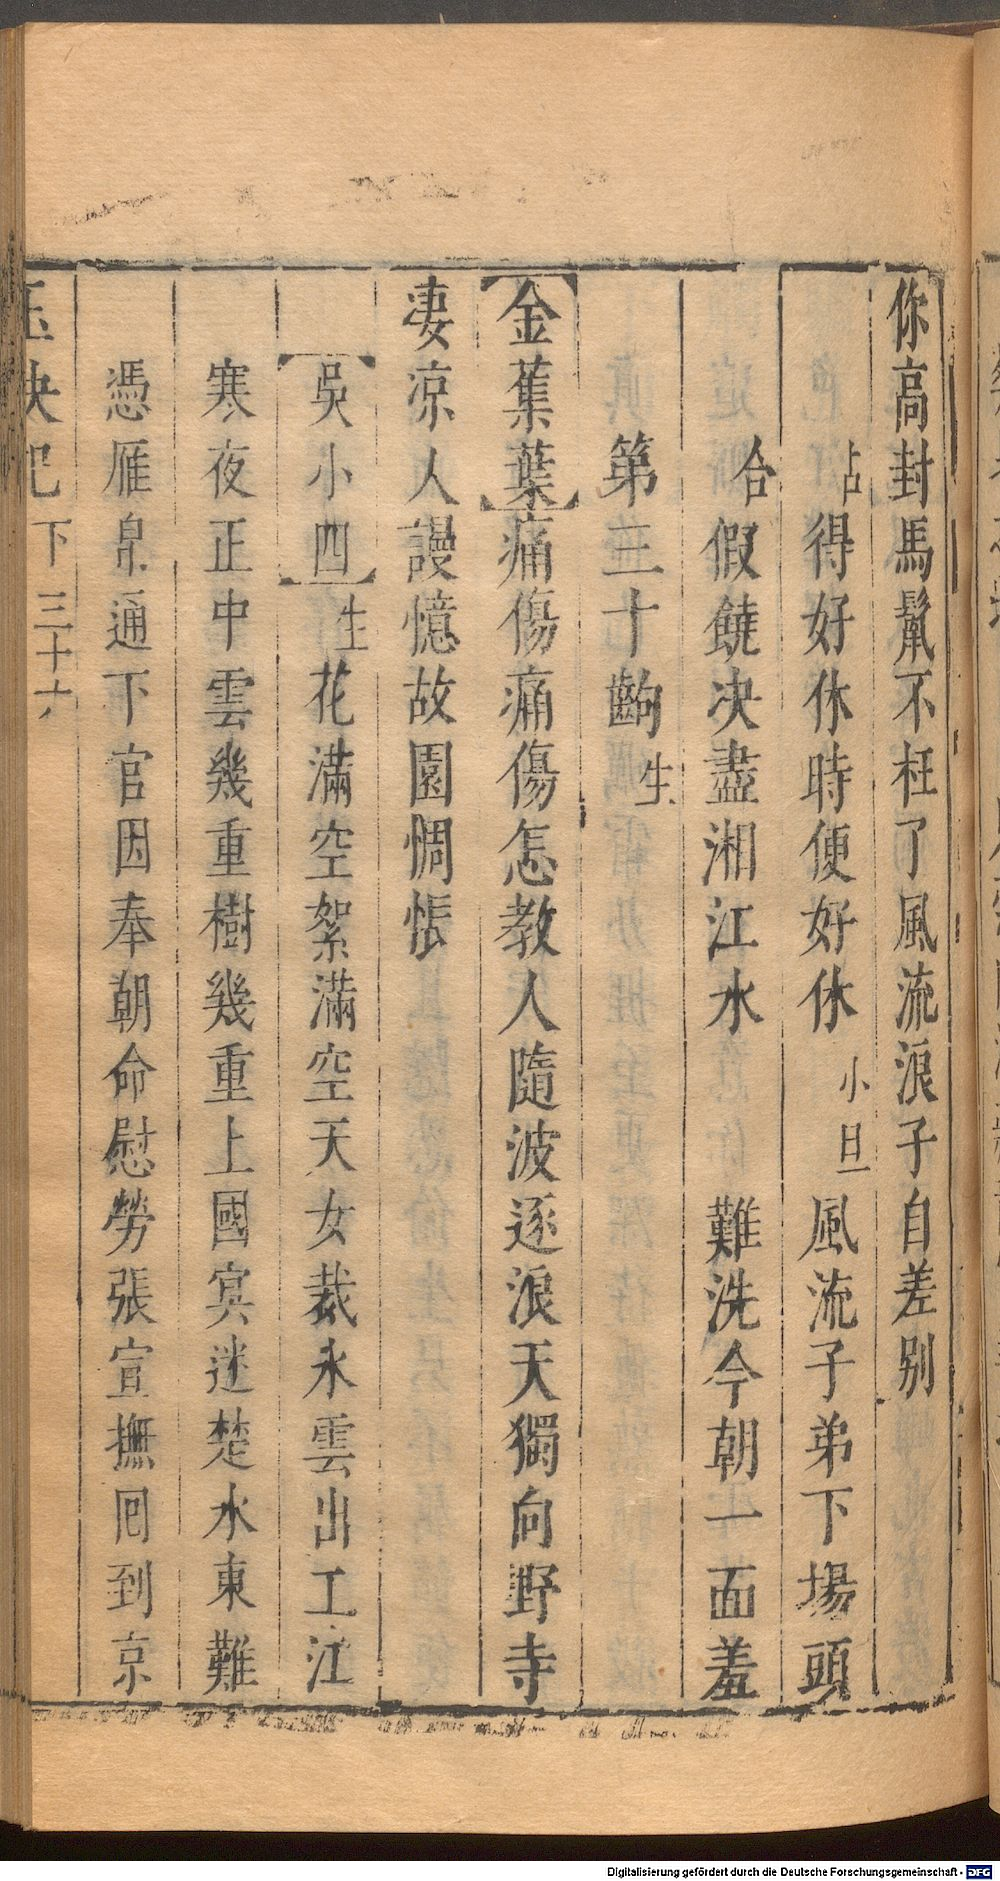 你高封馬鬣不枉了風流浪子自差別
占得好休時便好休 小旦 風流子弟下場頭
合 假饒決盡湘江水 難洗今朝一面羞
第三十齣 生
金蕉葉 痛傷痛傷怎教人隨波逐浪天獨向野寺
凄涼人謾憶故園惆悵
吳小四 生 花滿空絮滿空天女裁氷雲出工江
寒夜正中雲幾重樹幾重上國冥迷楚水東難
憑雁帛通下官因奉朝命慰勞張宣撫囘到京
玉玦記 下 三十六
Digitalisierung gefördert durch die Deutsche Forschungsgemeinschaft - DFG